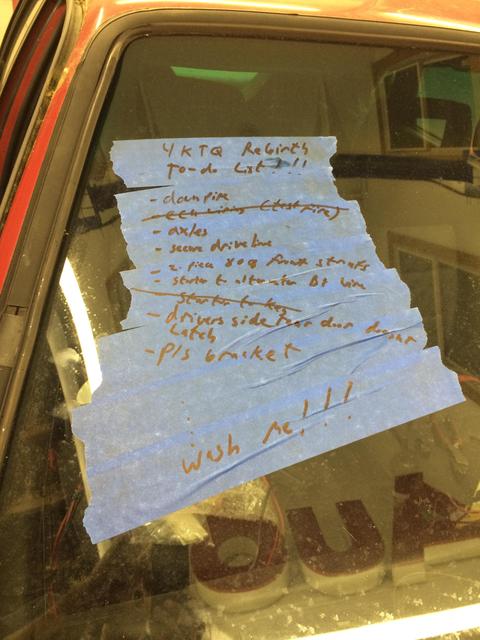 4KTQ Rebirth
To-do List!!!
- downpipe
- ECU wiring (test fire)
- axles
- secure driveline
- 2 piece 80q front struts
- starter to alternator B+ wire
Starter to key
- drivers side rear door
Latch
- P/S bracket
wash me!!!
Aud